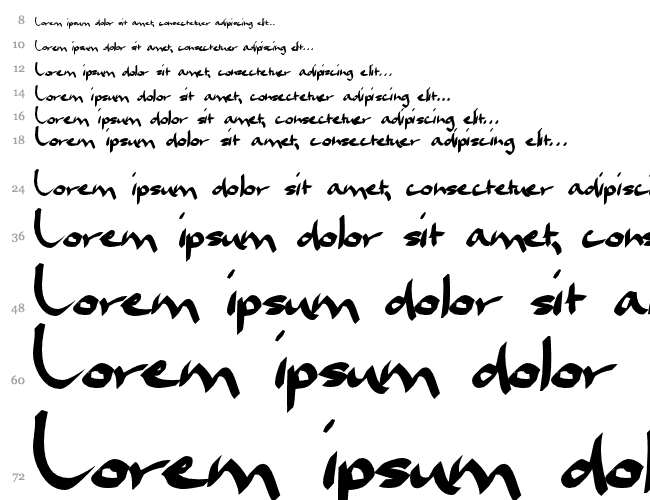 8 Lorem ipsum dolor sit amet, consectetuer adipiscing elit...
10 Lorem ipsum dolor sit amet, consectetuer adipiscing elit...
12 Lorem ipsum dolor sit amet, consectetuer adipiscing elit...
14 Lorem ipsum dolor sit amet, consectetuer adipiscing elit...
16 Lorem ipsum dolor sit amet, consectetuer adipiscing elit...
18 Lorem ipsum dolor sit amet, consectetuer adipiscing elit...
24 Lorem ipsum dolor sit amet, consectetuer adipisci
36 Lorem ipsum dolor sit amet, cons
48 Lorem ipsum dolor sit a
60 Lorem ipsum dolor
72 Lorem ipsum dol